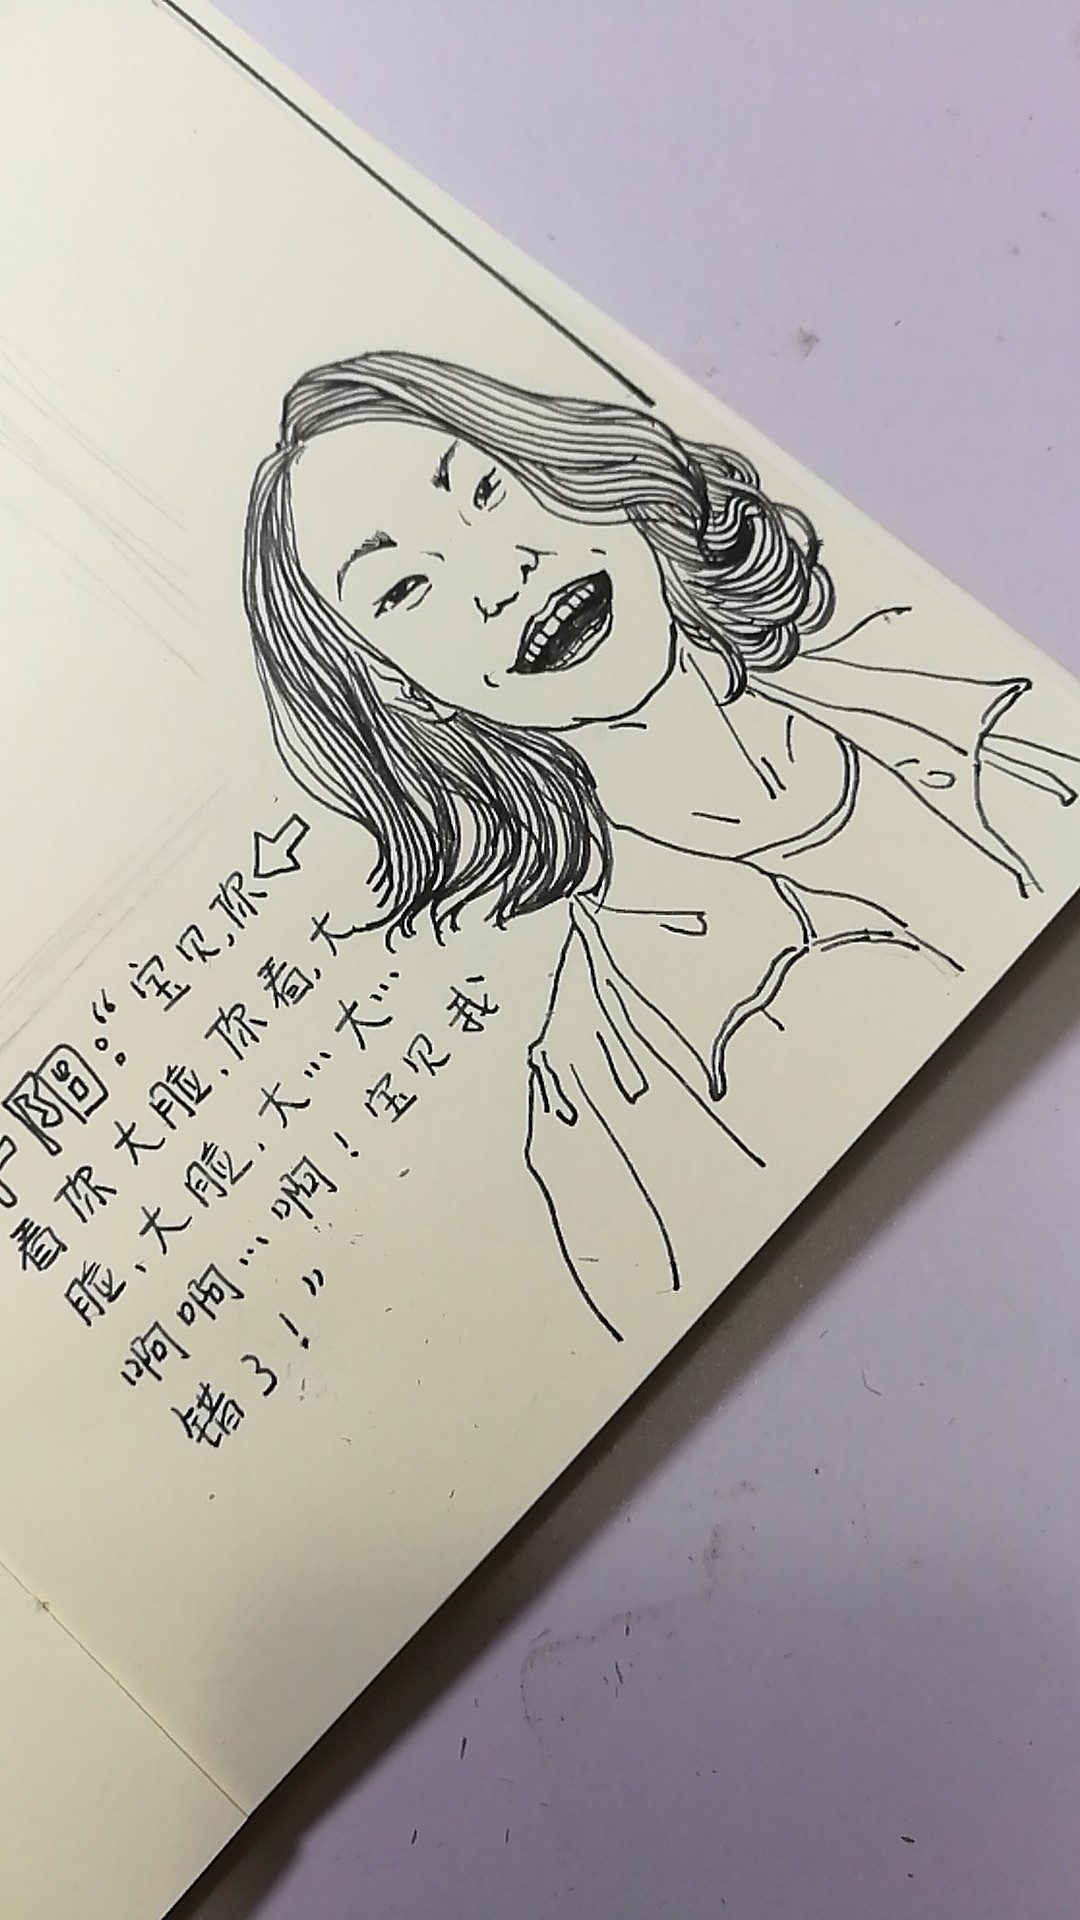 ："宝贝，你
看你大脸、你看、大
脸、大脸、大…大…
啊啊…啊！宝贝我
错了！"